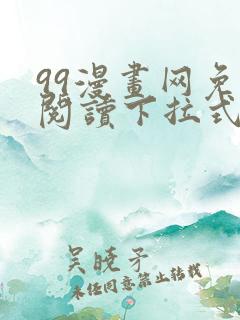 99漫畫网免
閱讀下拉式
吴晓矛
未经同意禁止转载